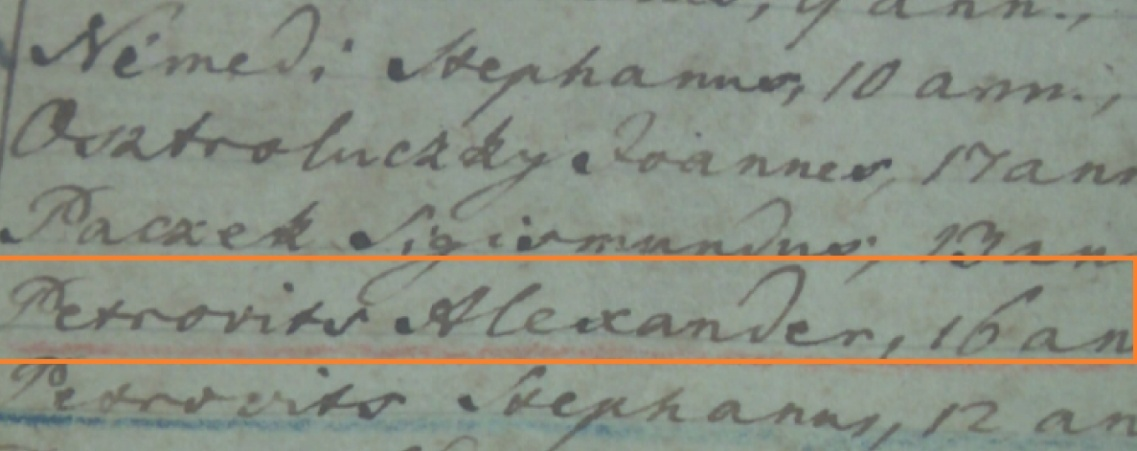 9 ann.,
Némedi Stephanus, 10 ann.,
Osztroluczky Joannes, 17 ann
Paczek Sigismundus, 13 an
Petrovits Alexander, 16 an
Petrovits Stephanus, 12 an